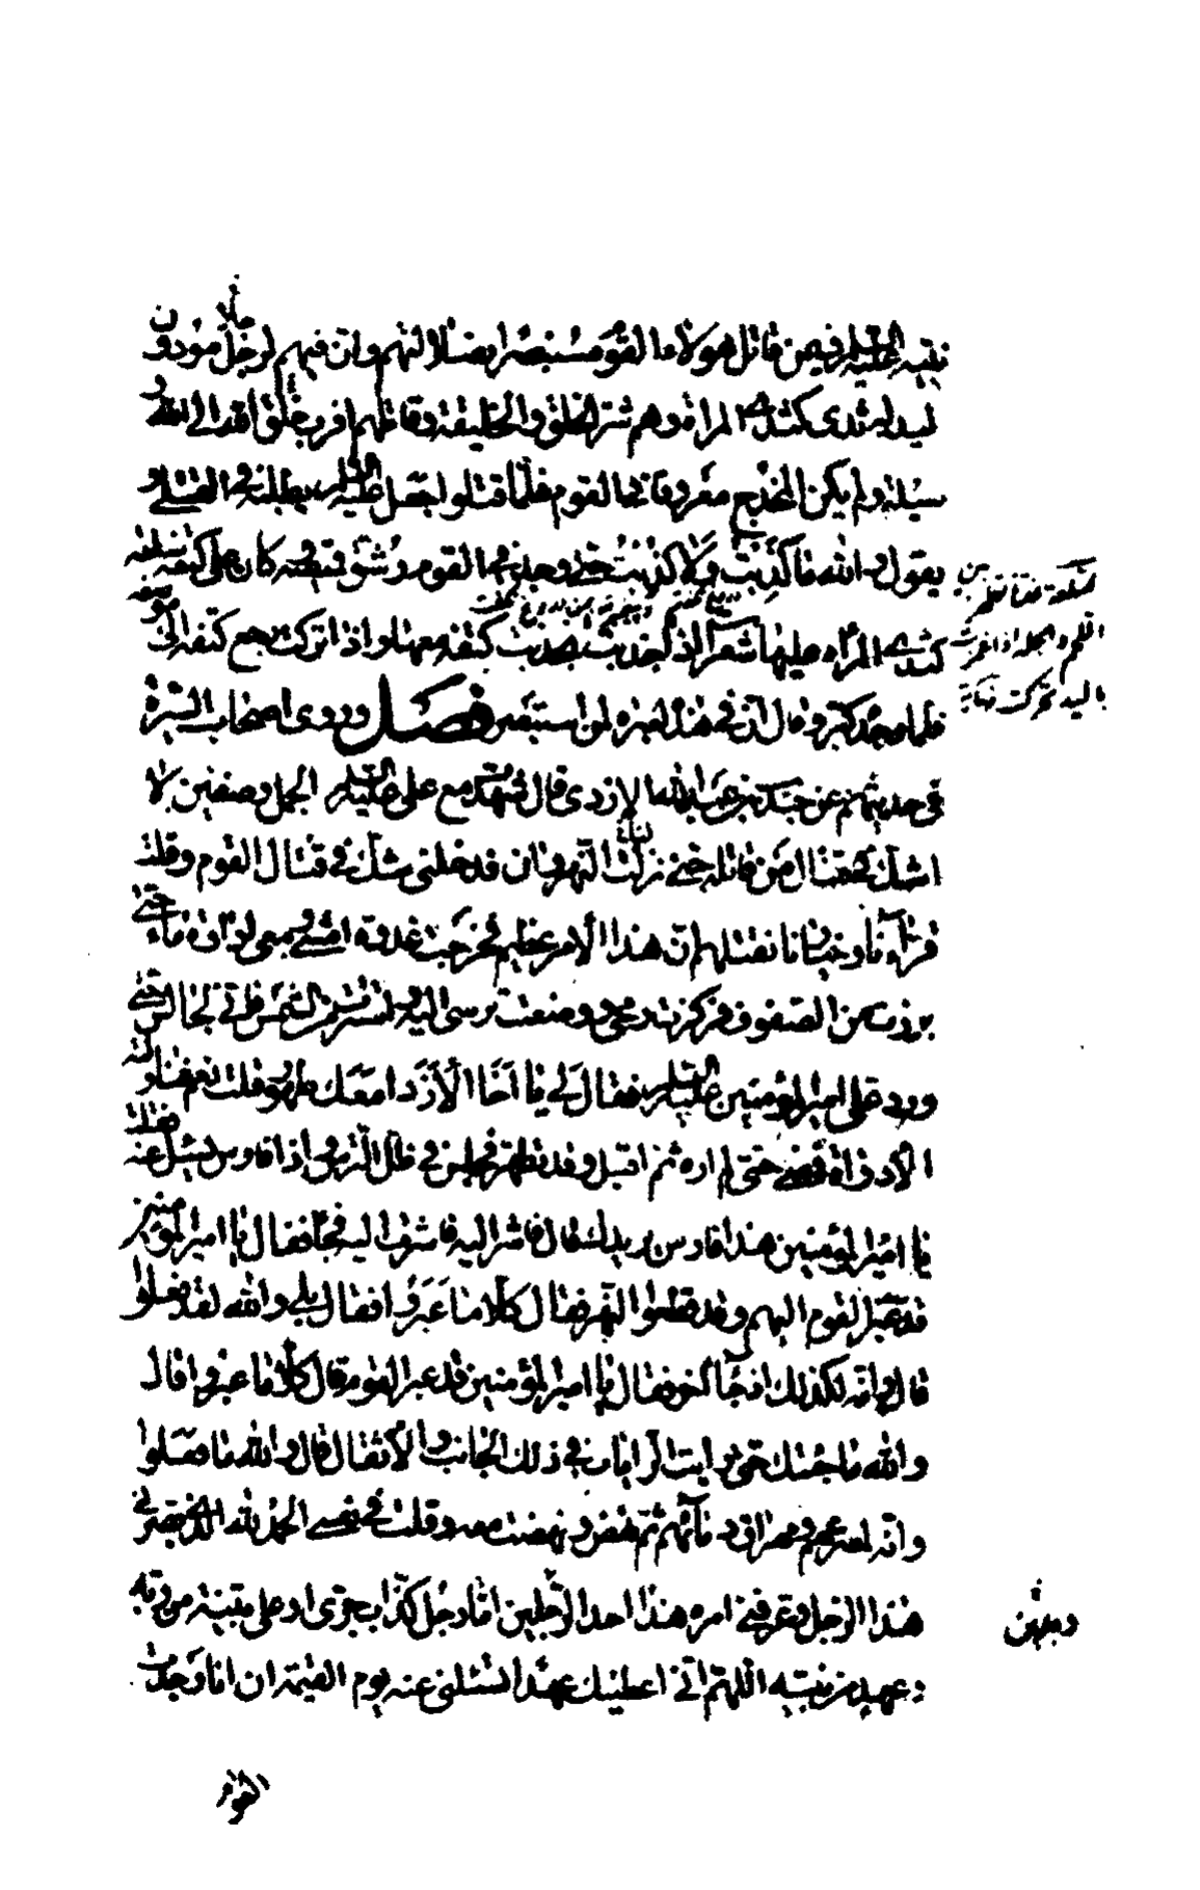 نبيه عليه السلام فيمن قاتل هؤلاء القوم مستبصرا بضلالتهم وان فيهم لرجلا مودون
اليد له ثدى كثدى المراة وهم شر الخلق والخليقة وقاتلهم اقرب خلق الله الى الله
وسيلة ولم يكن المخدج معروفا في القوم فلما قتلوا جعل عليه السلام يطلبه في القتلى و
يقول والله ما كذبت ولا كذبت حتى وجد في القوم وشق قميصه كان على كتفه سلعة
كثدى المراة عليها شعرات اذا جذبت انجذبت كتفه معها واذا تركت رجع كتفه الى موضعه
فلما وجده كبر وقال ان في هذا لعبرة لمن استبصر فصل وروى اصحاب السيرة
في حديثهم عن جندب بن عبد الله الازدى قال شهدت مع على عليه السلام الجمل وصفين لا
اشك في قتال من قاتله حتى نزلت النهروان فدخلنى شك في قتال القوم وقلت
قراؤنا وخيارنا نقتلهم ان هذا الامر عظيم فخرجت غدوة امشى ومعى اداوة ماء حتى
برزت من الصفوف فركزت رمحى ووضعت ترسى اليه واستترت من الشمس فانى لجالس حتى
ورد على امير المؤمنين عليه السلام فقال لى يا اخا الازد امعك طهور قلت نعم فناولته
الاداوة فمضى حتى لم اره ثم اقبل وقد تطهر فجلس في ظل الترس فاذا فارس يسئل عنه فقلت
يا امير المؤمنين هذا فارس يريدك قال فاشر اليه فاشرت اليه فجاء فقال يا امير المؤمنين
قد عبر القوم اليهم وقد قطعوا النهر فقال كلا ما عبروا فقال بلى والله لقد فعلوا
قال وانه لكذلك اذ جاء اخر فقال يا امير المؤمنين قد عبر القوم قال كلا ما عبروا قال
والله ما جئتك حتى رايت الرايات في ذلك الجانب والاثقال قال والله ما فعلوا
وانه لمصرعهم ومهراق دمائهم ثم نهض ونهضت معه وقلت في نفسى الحمد لله الذى بصرنى
هذا الرجل وعرفنى امره هذا احد الرجلين اما رجل كذاب جرى او على بينة من ربه
وعهد من نبيه اللهم انى اعطيك عهدا تسئلنى عنه يوم القيمة ان انا وجدت
القوم